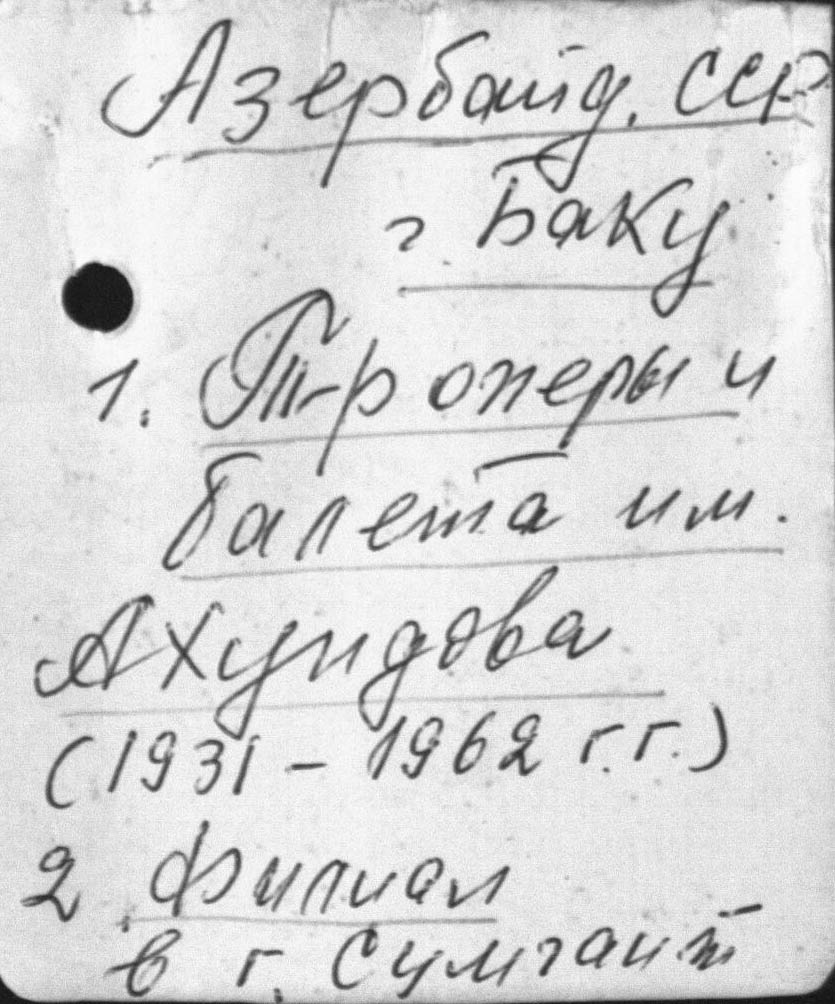 Азербайд. ССР
г Баку
1. Т-р оперы и
балета им.
Ахундова
(1931 - 1962 г.г.)
2 Филиал
в г. Сумгаит